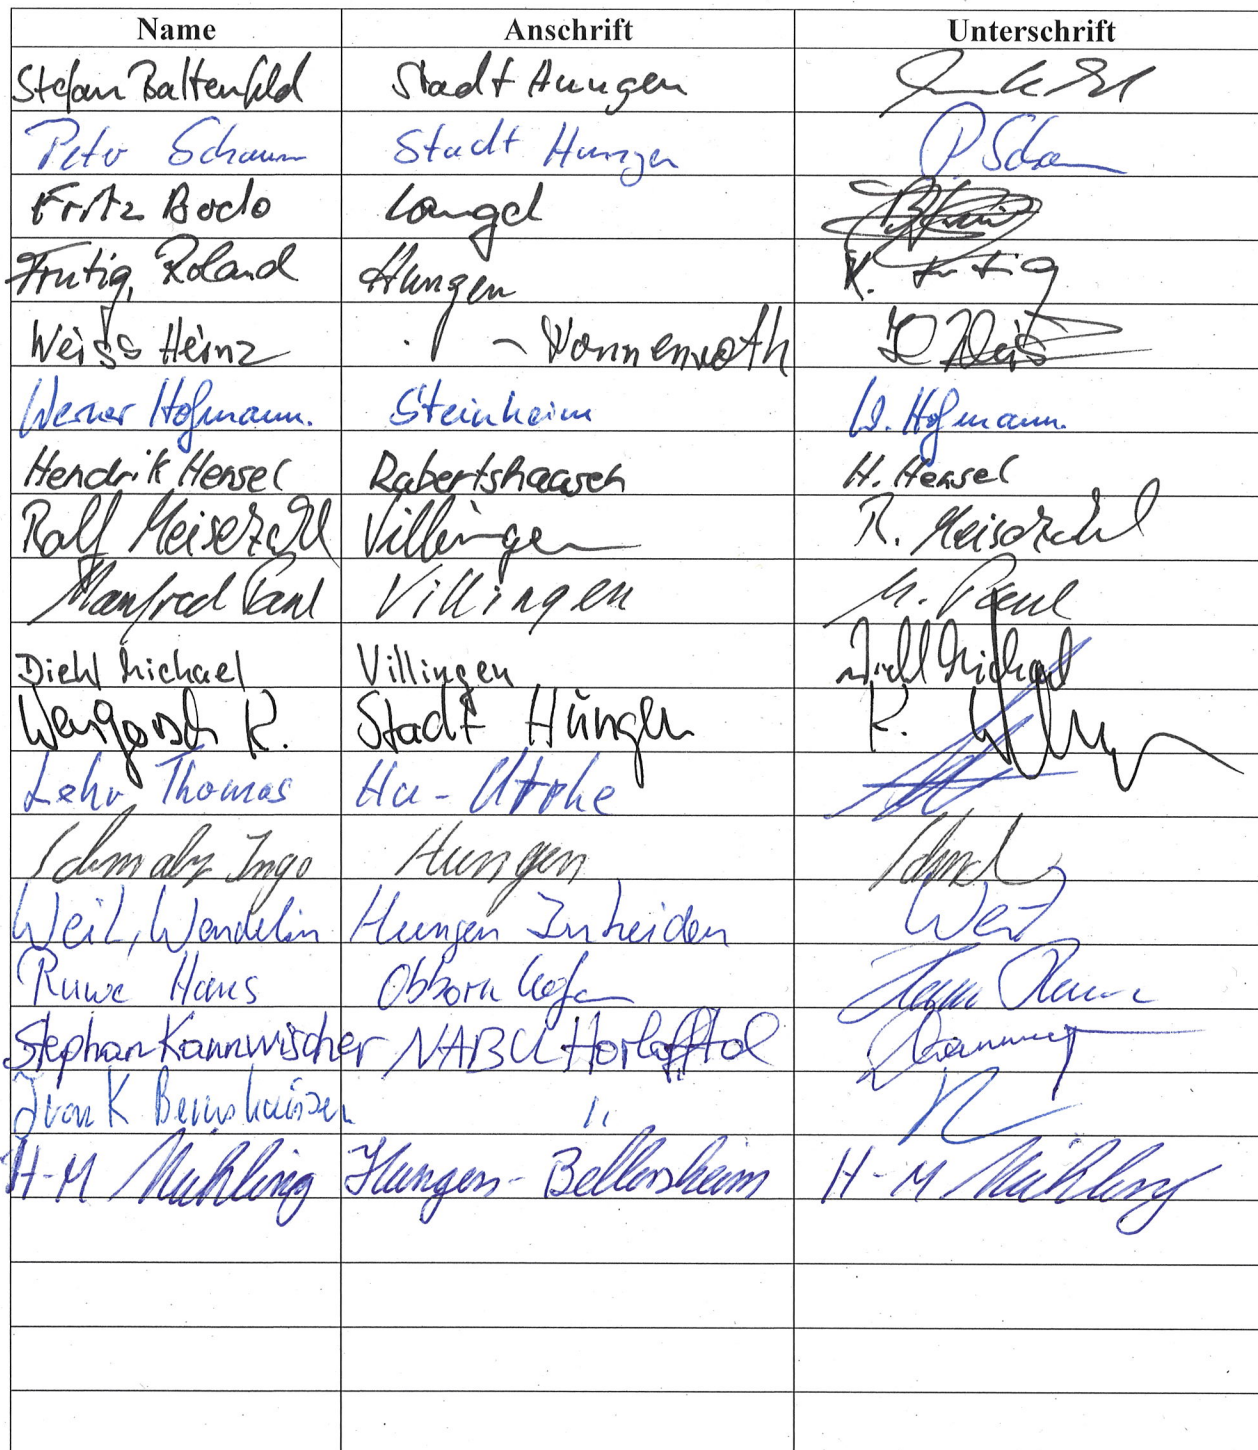 Name Anschrift Unterschrift
Stefan Baltenfeld Stadt Hungen
Peter Schaum Stadt Hungen P. Scha
Fritz Bodo Langd
Frutig, Roland Hungen R. Frutig
Weiss Heinz - Nonnenroth H Weis
Werner Hofmann. Steinheim W. Hofmann.
Hendrik Hensel Rabertshausen H. Hensel
Ralf Meiserzahl Villingen R. Meiserzahl
Manfred Paul Villingen M. Paul
Diehl Michael Villingen Diehl Michael
K. Stadt Hungen K.
Lehr Thomas Hu - Utphe
Schmalz Ingo Hungen
Weil, Wendelin Hungen Inheiden Weil
Ruwe Hans Obbornhofen Hans Ruwe
Stephan Kannwischer NABU Horlofftal
K Bernshausen "
H-M Mühling Hungen - Bellersheim H-M Mühling